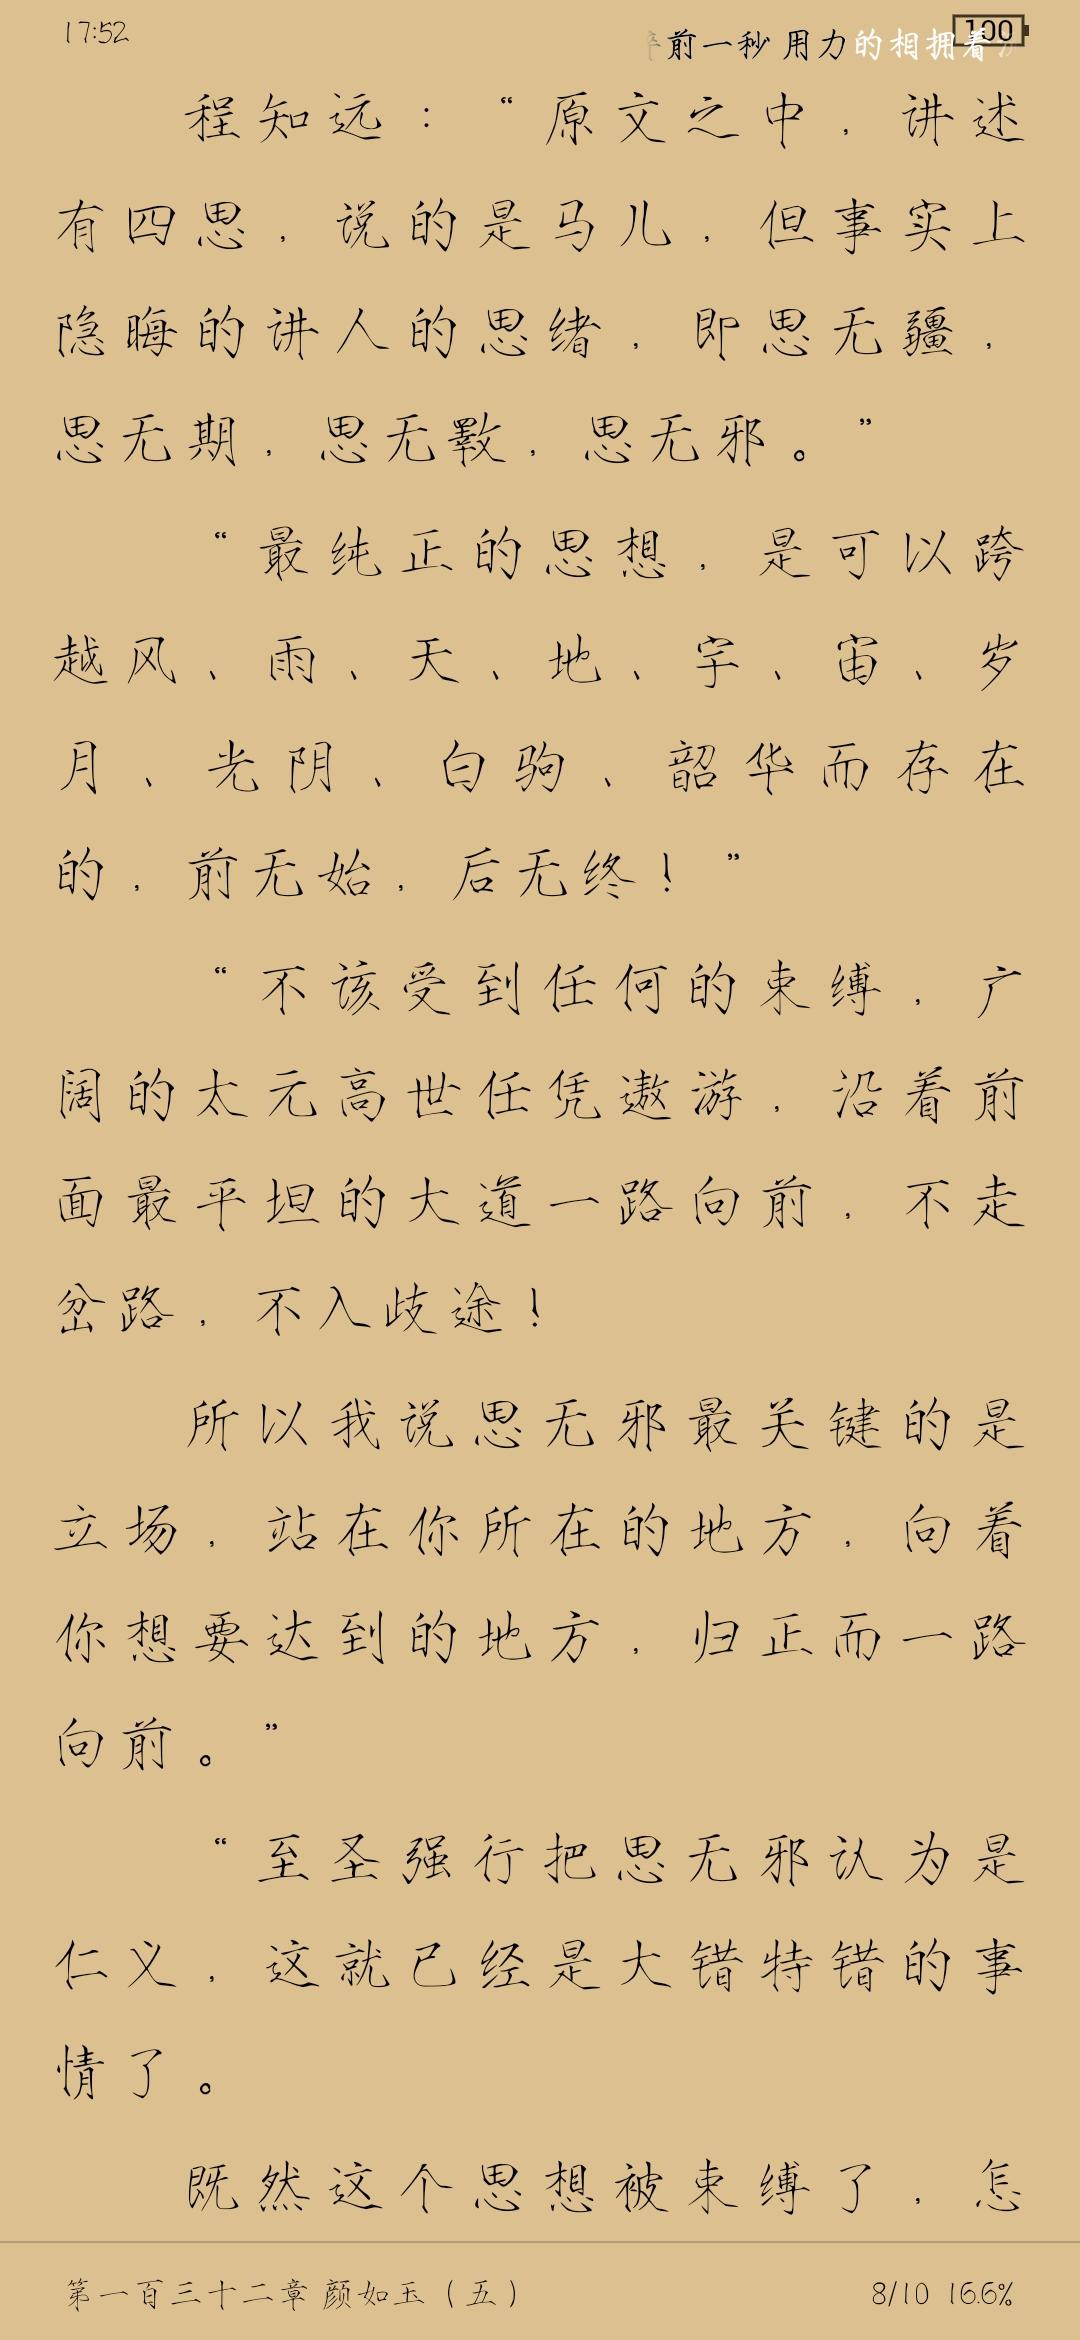 17:52
前一秒 用力的相拥着
100
程知远：“原文之中，讲述
有四思，说的是马儿，但事实上
隐晦的讲人的思绪，即思无疆，
思无期，思无斁，思无邪。”
“最纯正的思想，是可以跨
越风、雨、天、地、宇、宙、岁
月、光阴、白驹、韶华而存在
的，前无始，后无终！”
“不该受到任何的束缚，广
阔的太元高世任凭遨游，沿着前
面最平坦的大道一路向前，不走
岔路，不入歧途！
所以我说思无邪最关键的是
立场，站在你所在的地方，向着
你想要达到的地方，归正而一路
向前。”
“至圣强行把思无邪认为是
仁义，这就已经是大错特错的事
情了。
既然这个思想被束缚了，怎
第一百三十二章 颜如玉（五）
8/10 16.6%